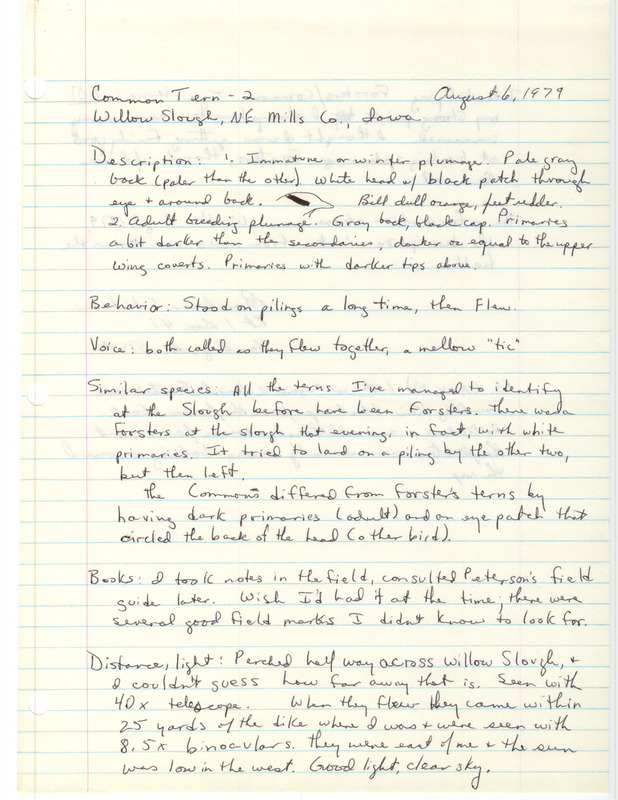 Common Tern - 2 August 6, 1979
Willow Slough, NE Mills Co., Iowa
Description: 1. Immature or winter plumage. Pale gray
back (paler than the other). White head w/ black patch through
eye + around back. Bill dull orange, feet redder.
2. Adult breeding plumage. Gray back, black cap. Primaries
a bit darker than the secondaries, darker or equal to the upper
wing coverts. Primaries with darker tips above.
Behavior: Stood on pilings a long time, then flew.
Voice: both called as they flew together, a mellow "tic"
Similar species: All the terns I've managed to identify
at the Slough before have been Forsters. There was a
Forsters at the slough that evening, in fact, with white
primaries. It tried to land on a piling by the other two,
but then left.
The Commons differed from Forster's terns by
having dark primaries (adult) and an eye patch that
circled the back of the head (other bird).
Books: I took notes in the field, consulted Peterson's field
guide later. Wish I'd had it at the time; there were
several good field marks I didn't know to look for.
Distance, light: Perched half way across Willow Slough, +
I couldn't guess how far away that is. Seen with
40x telescope. When they flew they came within
25 yards of the dike where I was + were seen with
8.5x binoculars. They were east of me + the sun
was low in the west. Good light, clear sky.